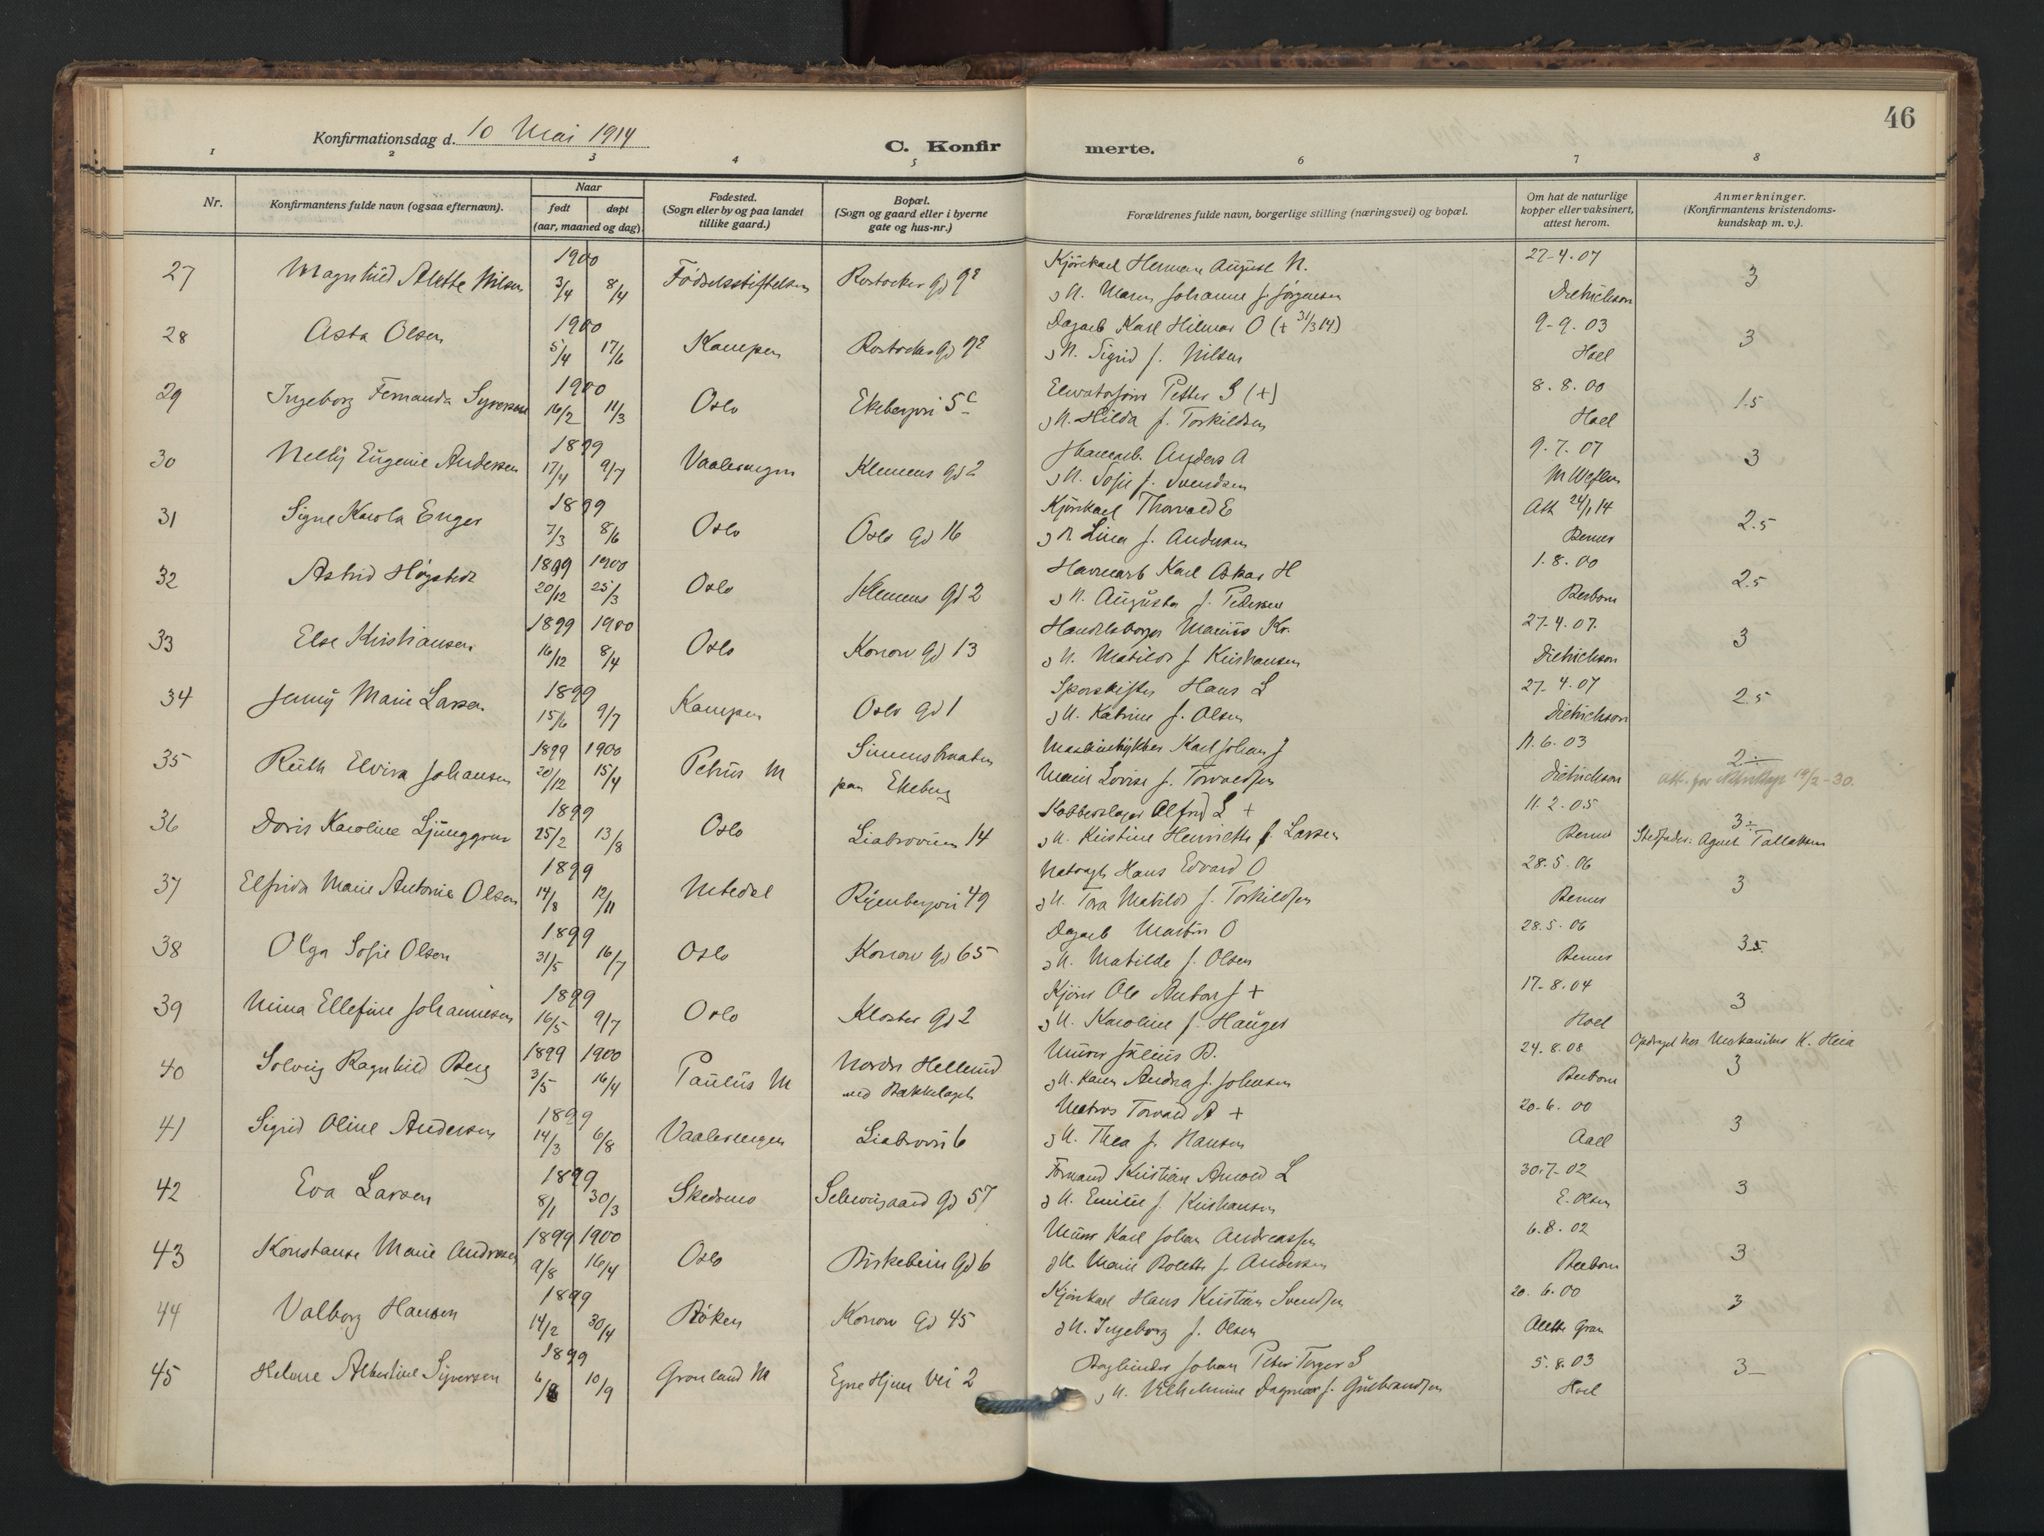 46
Konfirmationsdag d. 10 Mai 1914
C. Konfirmerte.
1 2 3 4 5 6 7 8
Nr.
Konfirmantens fulde navn (ogsaa efternavn).
Naar
født døpt
(aar, maaned og dag).
Fødested.
(Sogn eller by og paa landet
tillike gaard.)
Bopæl.
(Sogn og gaard eller i byerne
gate og hus-nr.)
Forældrenes fulde navn, borgerlige stilling (næringsvei) og bopæl.
Om hat de naturlige
kopper eller vaksinert,
attest herom.
Anmerkninger.
(Konfirmantens kristendoms-
kundskap m. v.).
1900 Kjørekarl Herman August N. 27-4.07
27 Magnhild Alette Nilsen 3/4 8/4 Fødselsstiftelsen Rostocker gd 92 3
o H. Maren Johanne f. Jørgensen Dietrichson
1900 Dagarb Karl Hilmar O (+ 31/3 14) 9-9.03
28 Asta Olsen 5/4 17/6 Kampen Rostocker gd 92 3
o H. Sigrid f. Nilsen Hoel
1900 Petter S (+) 8.8.00
29 Ingeborg Fernanda Syversen 16/2 11/3 Oslo Ekebergvei 5c 1.5
o H. Hilda f. Torkildsen Hoel
1899 Anders A 9.7.07
30 Nelly Eugenie Andersen 17/4 9/7 Vaalerengen Klemens gd 2 3
o H. Sofie f. Svendsen
1899 Kjørekarl Thorvald E Att 24/1 14
31 Signe Karola Enger 7/3 8/6 Oslo Oslo gd 16 2.5
o H. Lina f. Andersen Berner
1899 1900 Havnearb Karl Oskar H 1.8.00
32 Astrid Høgstedt 20/12 25/3 Oslo Klemens gd 2 2.5
o H. Augusta f. Pedersen Beebom
1899 1900 Handelsborger Marius Kr. 27-4.07.
33 Else Kristiansen 16/12 8/4 Oslo Konow gd 13 3
o H. Matilde f. Kristiansen Dietrichson
1899 Sporskifter Hans L 27-4.07
34 Jenny Marie Larsen 15/6 9/7 Kampen Oslo gd 1 2.5
o H. Katrine f. Olsen Dietrichson
1899 1900 Karl Johan J 11.6.03
35 Ruth Elvira Johansen 20/12 15/4 Petrus M Simenstraaten 2
paa Ekeberg Marie Lovise f. Torvaldsen Dietrichson 19/2-30.
1899 Kobberslager Alfred L + 11.2.05
36 Doris Karoline Ljunggren 25/2 13/8 Oslo Liabroveien 14 3-
o H. Kristine Henriette f. Larsen Berner Stedfader: Agnet Tallaksen
1899 Hans Edvard O 28.5.06
37 Elfrida Marie Antonie Olsen 14/8 12/11 Nitedal Ryenbergvei 49 3
o H. Tora Matilde f. Torkildsen Berner
1899 Dagarb Martin O 28.5.06
38 Olga Sofie Olsen 31/5 16/7 Oslo Konow gd 65 3.5
o H. Matilde f. Olsen Berner
1899 Kjører Ole Anton J + 17-8.04
39 Mina Ellefine Johannesen 16/5 9/7 Oslo Kloster gd 2 3
o H. Karoline f. Hauger Hoel
1899 1900 Murer Julius B. 24.8.08 Opdraget hos Mekaniker K. Heia
40 Solveig Ragnhild Berg 3/5 16/4 Paulus M Nordre Hellerud 3
ved Bækkelaget o H. Karen Andrea f. Johnsen Beebom
1899 Matros Torvald A + 20-6.00
41 Sigrid Oline Andersen 14/3 6/8 Vaalerengen Liabrovei 6 3
o H. Thea f. Hansen Aall
1899 Formand Kristian Arnold L 30-7-02
42 Eva Larsen 8/1 30/3 Skedsmo Schweigaard gd 57 3
o H. Emilie f. Kristiansen E. Olsen
1899 1900 Murer Karl Johan Andreassen 6.8.02
43 Konstanse Marie Andresen 9/8 16/4 Oslo Birkebein gd 6 3
o H. Marie Bolette f. Andersen Beebom
1899 Kjørekarl Hans Kristian Svendsen 20.6.00
44 Valborg Hansen 14/2 30/4 Røken Konow gd 45 3
o H. Ingeborg f. Olsen Alette Gran
1899 Bogbinder Johan Peter Torger S 5.8.03
45 Helene Albertine Syversen 6/8 10/9 Grønland M Egne Hjem vei 2 3-
o H. Vilhelmine Dagmar f. Gulbrandsen Hoel